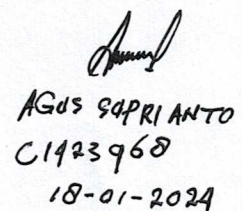 AGUS SUPRIANTO
C1423968
18-01-2024